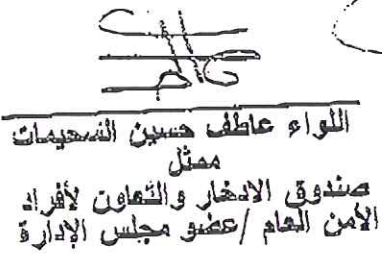 اللواء عاطف حسين السحيمات
ممثل
صندوق الادخار والتعاون لأفراد
الأمن العام /عضو مجلس الإدارة